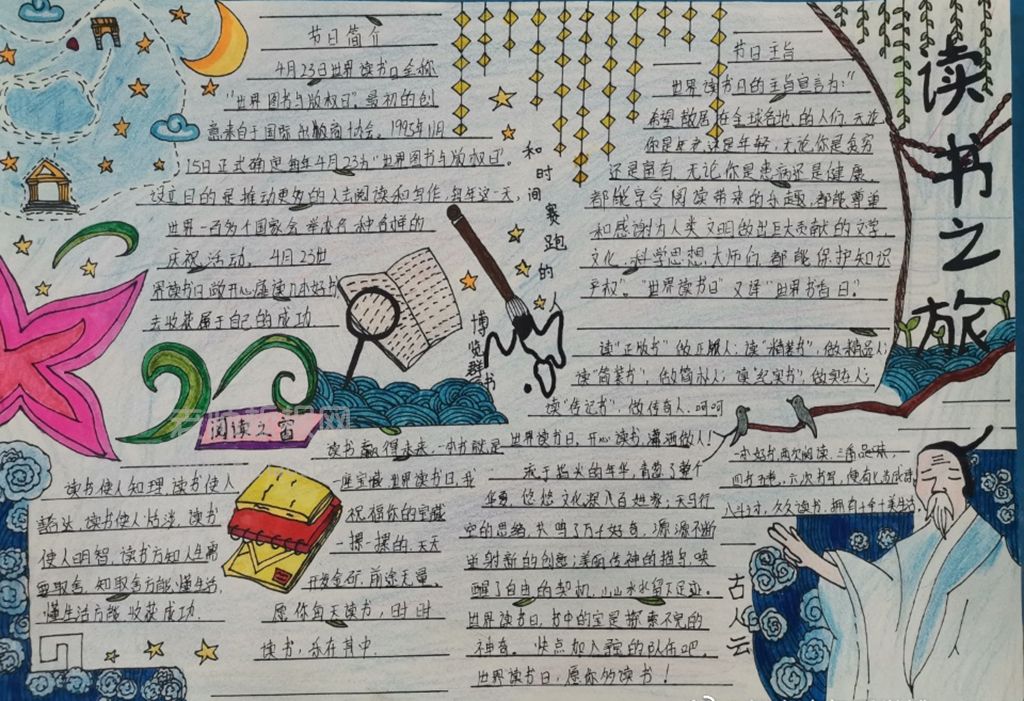 读书之旅
节日简介
4月23日世界读书日全称
“世界图书与版权日”，最初的创
意来自于国际出版商协会。1995年11月
15日正式确定每年4月23为“世界图书与版权日”。
设立目的是推动更多的人去阅读和写作，每年这一天，
世界一百多个国家会举办各种各样的
庆祝活动。4月23世
界读书日敞开心扉读几本好书
去收获属于自己的成功
和时间赛跑的
博览群书
节日主旨
世界读书日的主旨宣言为：“
希望散居在全球各地的人们，无论
你是年老还是年轻，无论你是贫穷
还是富有，无论你是患病还是健康，
都能享受阅读带来的乐趣，都能尊重
和感谢为人类文明做出巨大贡献的文学，
文化，科学思想大师们，都能保护知识
产权”。“世界读书日”又译“世界书香日”。
读“正版书”做正版人；读“精装书”，做精品人；
读“简装书”，做简朴人；读“纪实书”做实在人；
读“传记书”，做传奇人，呵呵
世界读书日，开心读书，潇洒做人！
阅读之窗
读书使人知理，读书使人
豁达，读书使人恬淡，读书
使人明智，读书方知人生需
要取舍，知取舍方能懂生活，
懂生活方能收获成功.
读书赢得未来，一本书就是
一座宝藏，世界读书日，我
祝福你的宝藏
一摞一摞的，天天
开发金矿，前途无量.
愿你每天读书，时时
读书，乐在其中.
成于指尖的年华，
华夏，悠悠文化
空的思绪，共鸣了万千好奇，源源不断
迸射新的创意，美丽传神的描写，唤
醒了自由的契机，山山水水留下足迹.
世界读书日，书中的宝是探索不完的
神奇。快点加入我的队伍吧。
世界读书日，愿你多读书！
一本好书，两次阅读，三番品味，
四书五经，六次书写，
八斗才，久久读书，拥有十全十美生活.
古人云